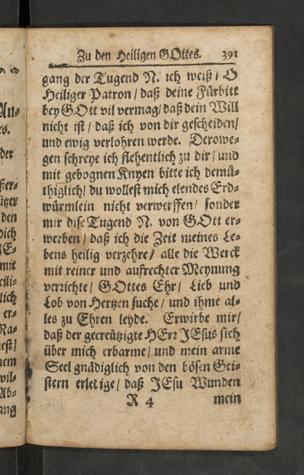 Zu den Heiligen GOttes. 391
gang der Tugend N. ich weiß / O
Heiliger Patron / daß deine Fürbitt
bey GOtt vil vermag / daß dein Will
nicht ist / daß ich von dir gescheiden /
und ewig verlohren werde. Derowe-
gen schreye ich flehentlich zu dir / und
mit gebognen Knyen bitte ich demü-
thiglich / du wollest mich elendes Erd-
würmlein nicht verwerffen / sonder
mir dise Tugend N. von GOtt er-
werben / daß ich die Zeit meines Le-
bens heilig verzehre / alle die Werck
mit reiner und aufrechter Meynung
verrichte / GOttes Ehr / Lieb und
Lob von Hertzen suche / und ihme al-
les zu Ehren leyde. Erwirbe mir /
daß der gecreützigte HErr JEsus sich
über mich erbarme / und mein arme
Seel gnädiglich von den bösen Gei-
stern erledige / daß JEsu Wunden
R 4 mein